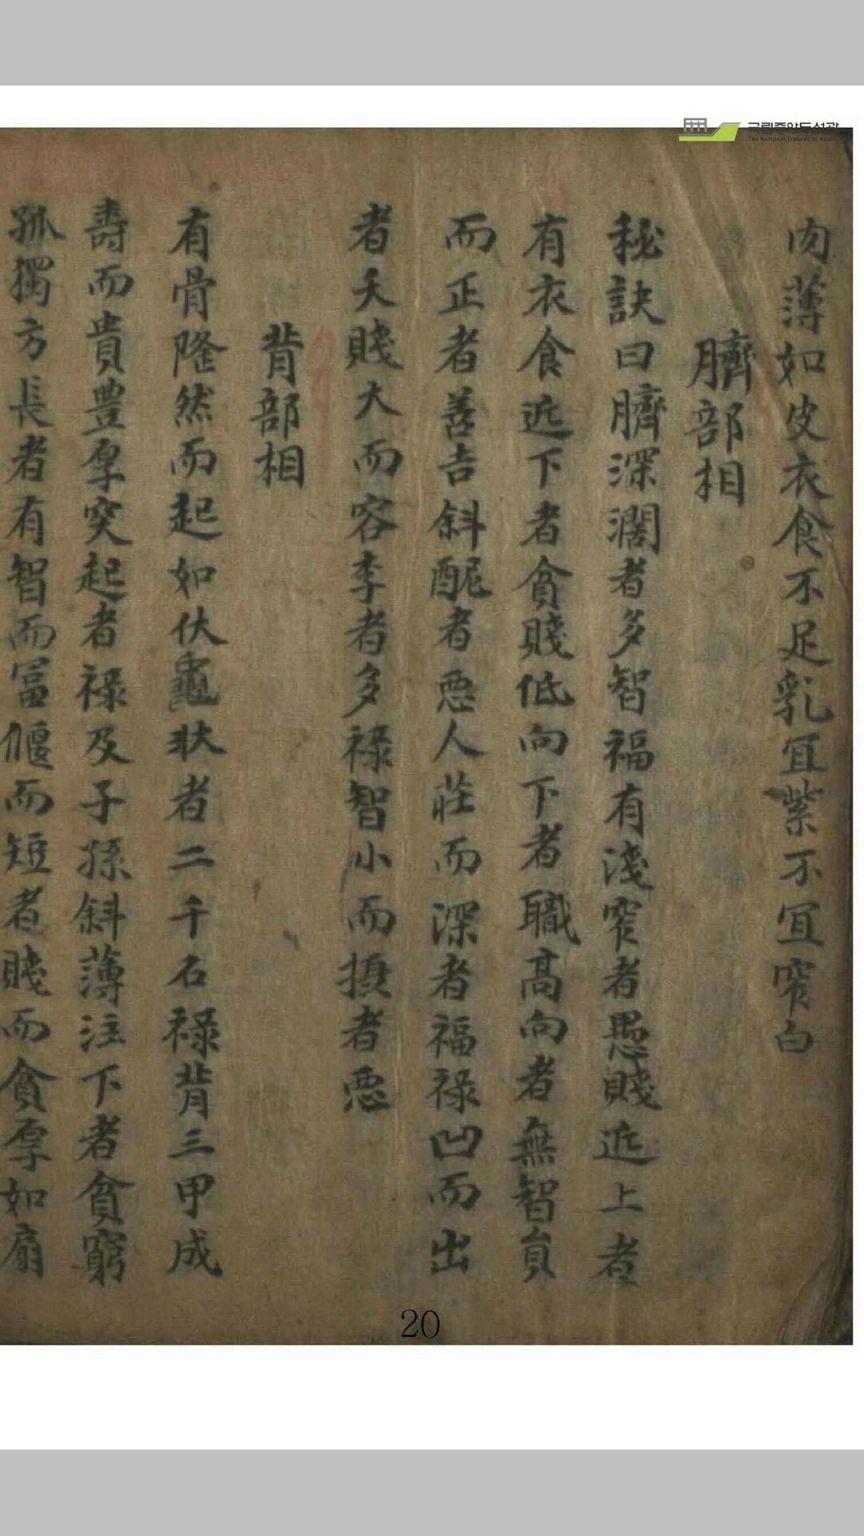 肉薄如皮衣食不足乳冝紫不冝窄白
臍部相
秘訣曰臍深濶者多智福有淺窄者愚賤近上者
有衣食近下者貧賤低向下者職高向者無智貟
而正者善吉斜醜者恶人莊而深者福禄凹而出
者夭賤大而容李者多禄智小而摸者恶
背部相
有骨隆然而起如伏龜狀者二千石禄背三甲成
壽而貴豊厚突起者禄及子孫斜薄注下者貧窮
孤獨方長者有智而冨偃而短者賤而貪厚如扇
국립중앙도서관
20